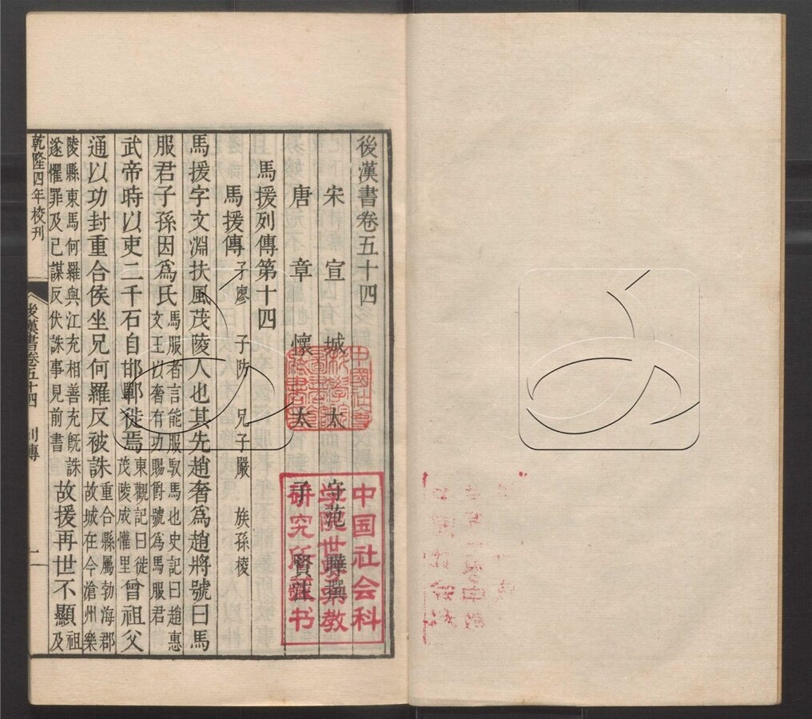 後漢書卷五十四
宋宣城太守范曄撰
唐章懷太子賢注
馬援列傳第十四
馬援傳 子廖 子防 兄子嚴 族孫棱
馬援字文淵扶風茂陵人也其先趙奢爲趙將號曰馬
服君子孫因爲氏 馬服者言能服馭馬也史記曰趙惠文王以奢有功賜爵號爲馬服君
武帝時以吏二千石自邯鄲徙焉 東觀記曰徙茂陵成懽里 曾祖父
通以功封重合侯坐兄何羅反被誅 重合縣屬勃海郡故城在今滄州樂
陵縣東馬何羅與江充相善充旣誅遂懼罪及己謀反伏誅事見前書 故援再世不顯 祖及
乾隆四年校刊
後漢書卷五十四 列傳
一
中国社会科
学院世界宗教
研究所藏书